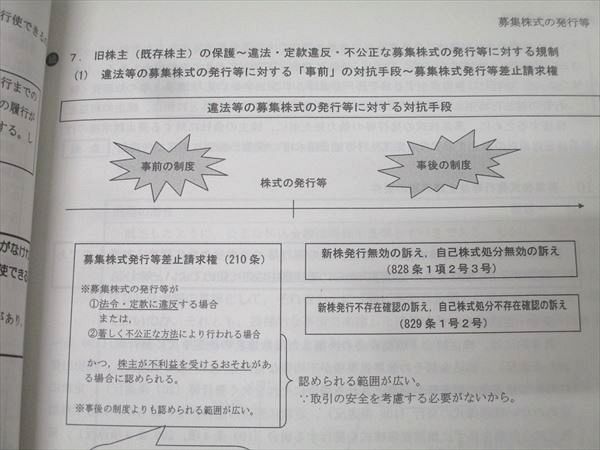 募集株式の発行等
7. 旧株主（既存株主）の保護～違法・定款違反・不公正な募集株式の発行等に対する規制
(1) 違法等の募集株式の発行等に対する「事前」の対抗手段～募集株式発行等差止請求権
違法等の募集株式の発行等に対する対抗手段
事前の制度
事後の制度
株式の発行等
募集株式発行等差止請求権（210 条）
※募集株式の発行等が
①法令・定款に違反する場合
または，
②著しく不公正な方法により行われる場合
かつ，株主が不利益を受けるおそれがあ
る場合に認められる。
※事後の制度よりも認められる範囲が広い。
新株発行無効の訴え，自己株式処分無効の訴え
（828 条 1 項 2 号 3 号）
新株発行不存在確認の訴え，自己株式処分不存在確認の訴え
（829 条 1 号 2 号）
認められる範囲が広い。
∵取引の安全を考慮する必要がないから。
行使できる
行までの
の履行が
する。し
がなけれ
使できる
があり，